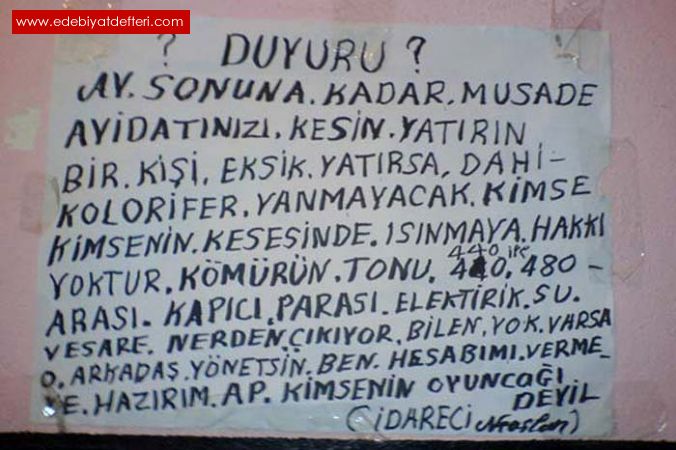 www.edebiyatdefteri.com
? DUYURU ?
AY. SONUNA. KADAR. MUSADE
AYİDATINIZI. KESİN. YATIRIN
BİR. KİŞİ. EKSİK. YATIRSA, DAHİ-
KOLORİFER. YANMAYACAK. KİMSE
KİMSENİN. KESESİNDE. ISINMAYA. HAKKI
YOKTUR. KÖMÜRÜN. TONU. 440. 480-
440 İPE
ARASI. KAPICI. PARASI. ELEKTİRİK. SU.
VESARE. NERDEN. ÇIKIYOR. BİLEN. YOK. VARSA
O. ARKADAŞ. YÖNETSİN. BEN. HESABIMI. VERME-
YE. HAZIRIM. AP. KİMSENİN OYUNCAĞI
DEYİL
(İDARECİ )